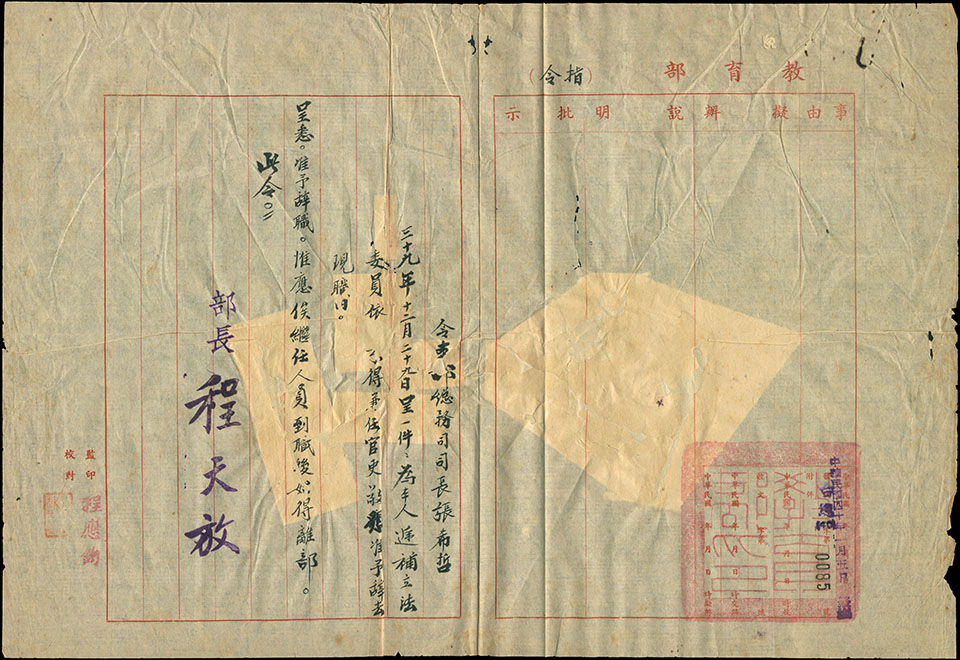 教育部(指令)
事由擬辦說明批示
中華民國四十年一月
台總
0085
令本部總務司司長張希哲
三十九年十二月二十九日呈一件、為手人遞補立法
委員依 不得兼任官吏敬懇准予辭去
現職由。
呈悉。准予辭職。惟應俟繼任人員到職後始得離部。
此令。
部長 程天放
監印
校對
程應